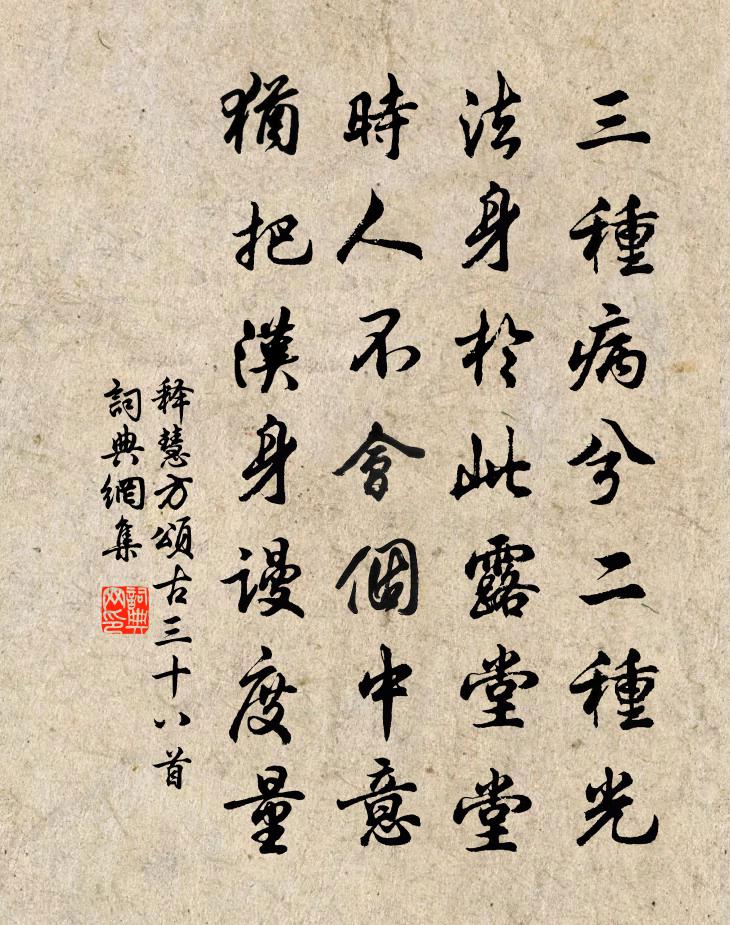 三種病兮二種光
法身於此露堂堂
時人不會個中意
猶把漢身謾度量
释慧方頌古三十八首
詞典網集
詞典
网印